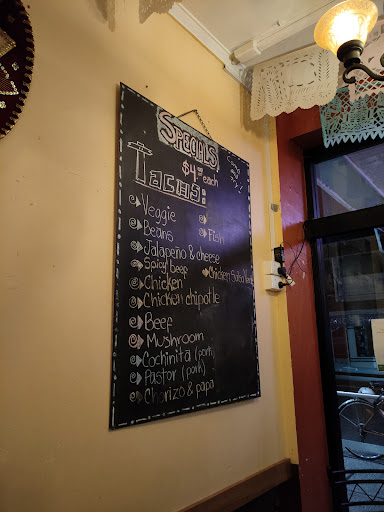 SPECIALS
$4.00 each
TACOS:
Veggie
Beans
Fish
Jalapeño & cheese
Spicy beef
Chicken Salsa
Chicken
Chicken chipotle
Beef
Mushroom
Cochinita (pork)
Pastor (pork)
Chorizo & papa